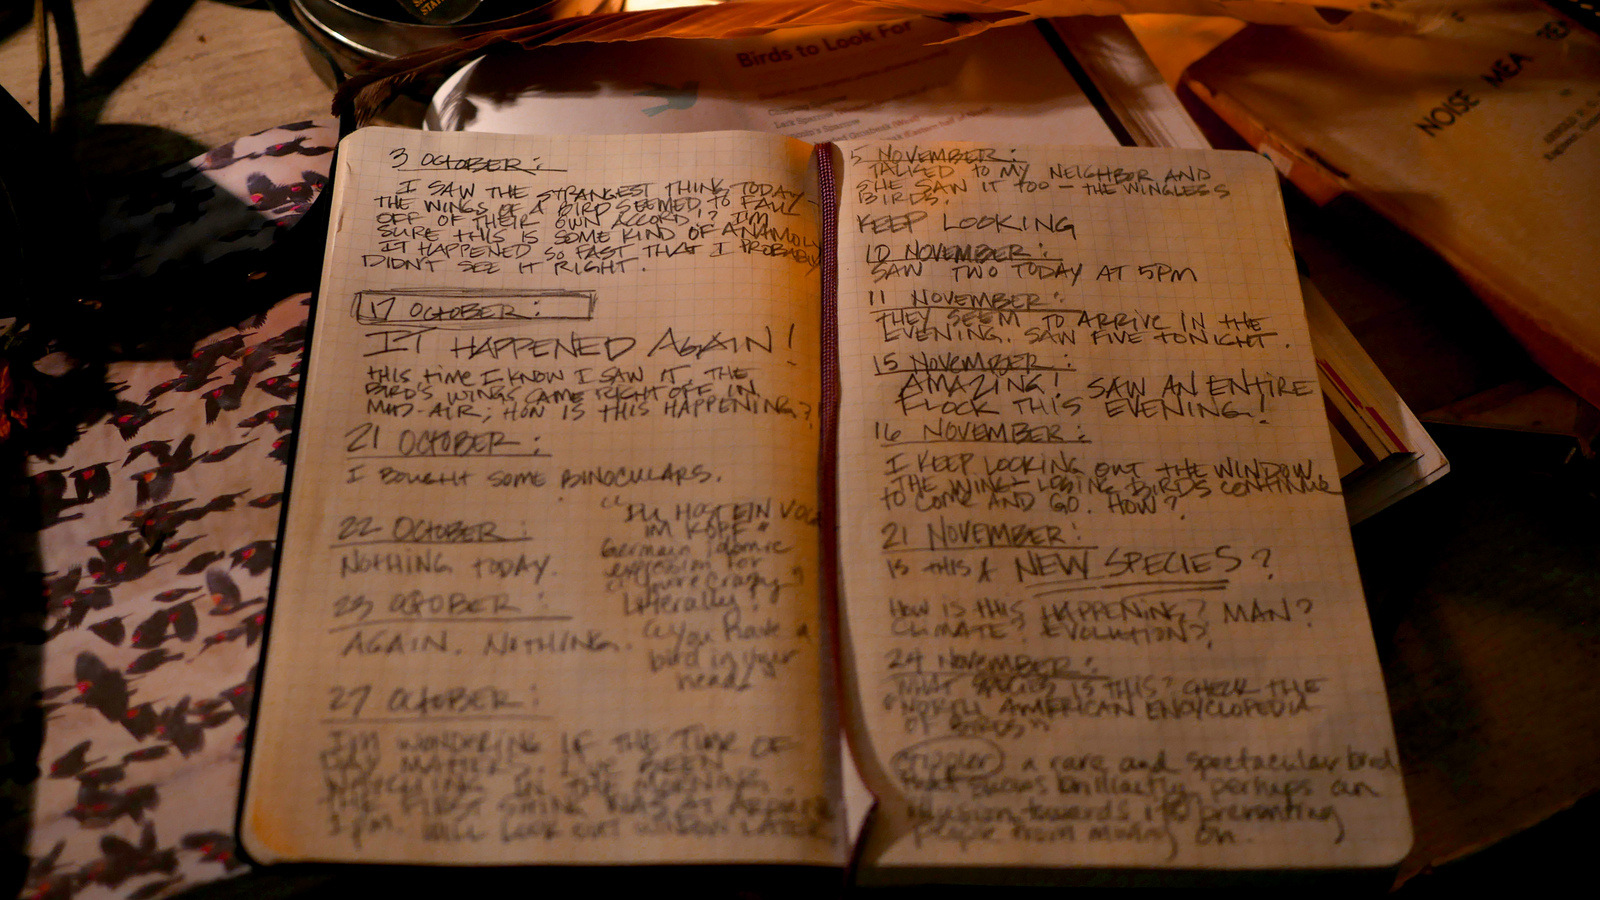 Birds to Look For
NOISE MEA
3 OCTOBER:
I SAW THE STRANGEST THINK TODAY -
THE WINGS OF A BIRD SEEMED TO FALL
OFF OF THEIR OWN ACCORD!? I'M
SURE THIS IS SOME KIND OF ANAMOLY
IT HAPPENED SO FAST THAT I PROBABLY
DIDN'T SEE IT RIGHT.
17 OCTOBER:
IT HAPPENED AGAIN!
THIS TIME I KNOW I SAW IT. THE
BIRD'S WINGS CAME RIGHT OFF IN
MID-AIR; HOW IS THIS HAPPENING?
21 OCTOBER:
I BOUGHT SOME BINOCULARS.
22 OCTOBER:
NOTHING TODAY.
23 OCTOBER:
AGAIN. NOTHING.
"DU HOST EIN VOG
IM KOPF"
German idiomic
expression for
"you're crazy"
Literally:
"you have a
bird in your
head"
27 OCTOBER:
I'M WONDERING IF THE TIME OF
DAY MATTERS. I'VE BEEN
WATCHING IN THE MORNING.
THE FIRST WAS AT AROUND
WILL LOOK OUT WINDOW LATER
5 NOVEMBER:
TALKED TO MY NEIGHBOR AND
SHE SAW IT TOO - THE WINGLESS
BIRDS.
KEEP LOOKING
10 NOVEMBER:
SAW TWO TODAY AT 5PM
11 NOVEMBER:
THEY SEEM TO ARRIVE IN THE
EVENING. SAW FIVE TONIGHT.
15 NOVEMBER:
AMAZING! SAW AN ENTIRE
FLOCK THIS EVENING!
16 NOVEMBER:
I KEEP LOOKING OUT THE WINDOW.
THE WING-LOSING BIRDS CONTINUE
TO COME AND GO. HOW?
21 NOVEMBER:
IS THIS A NEW SPECIES?
HOW IS THIS HAPPENING? MAN?
CLIMATE? EVOLUTION?
24 NOVEMBER:
WHAT SPECIES IS THIS? CHECK THE
"NORTH AMERICAN ENCYCLOPEDIA
OF BIRDS"
crippler a rare and spectacular bird
that shows brilliantly, perhaps an
illusion towards its preventing
people from moving on.